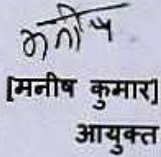 मनीष
[मनीष कुमार]
आयुक्त